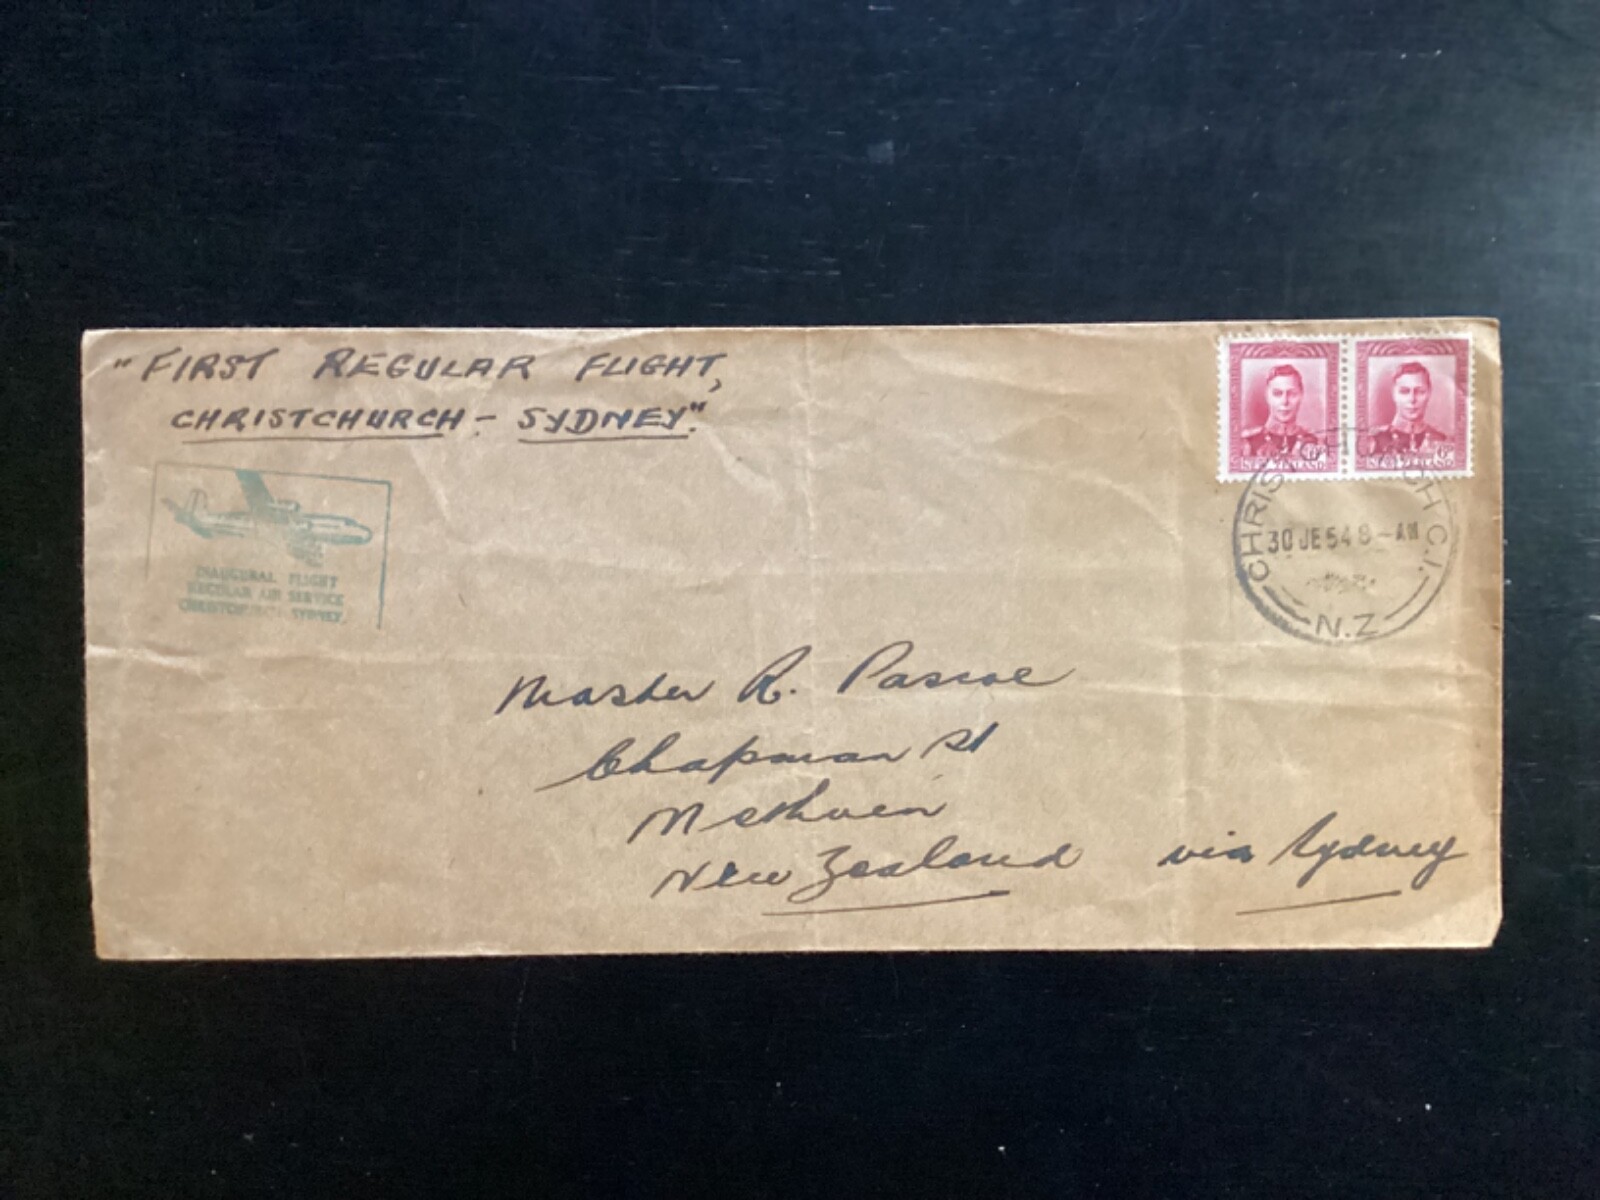 "FIRST REGULAR FLIGHT,
CHRISTCHURCH - SYDNEY."
INAUGURAL FLIGHT
REGULAR AIR SERVICE
CHRISTCHURCH SYDNEY
NEW ZEALAND
NEW ZEALAND
CHRISTCHURCH C.1.
30 JE 54 8 - AM
N.Z
Master R. Pascoe
Chapman St
Methven
New Zealand via Sydney